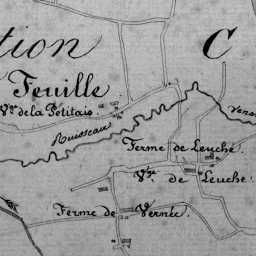 tion C
Feuille
V.ge de la Petitais
Ruisseau
Ferme de Leuché.
V.ge de Leuche.
Ferme de Vernée